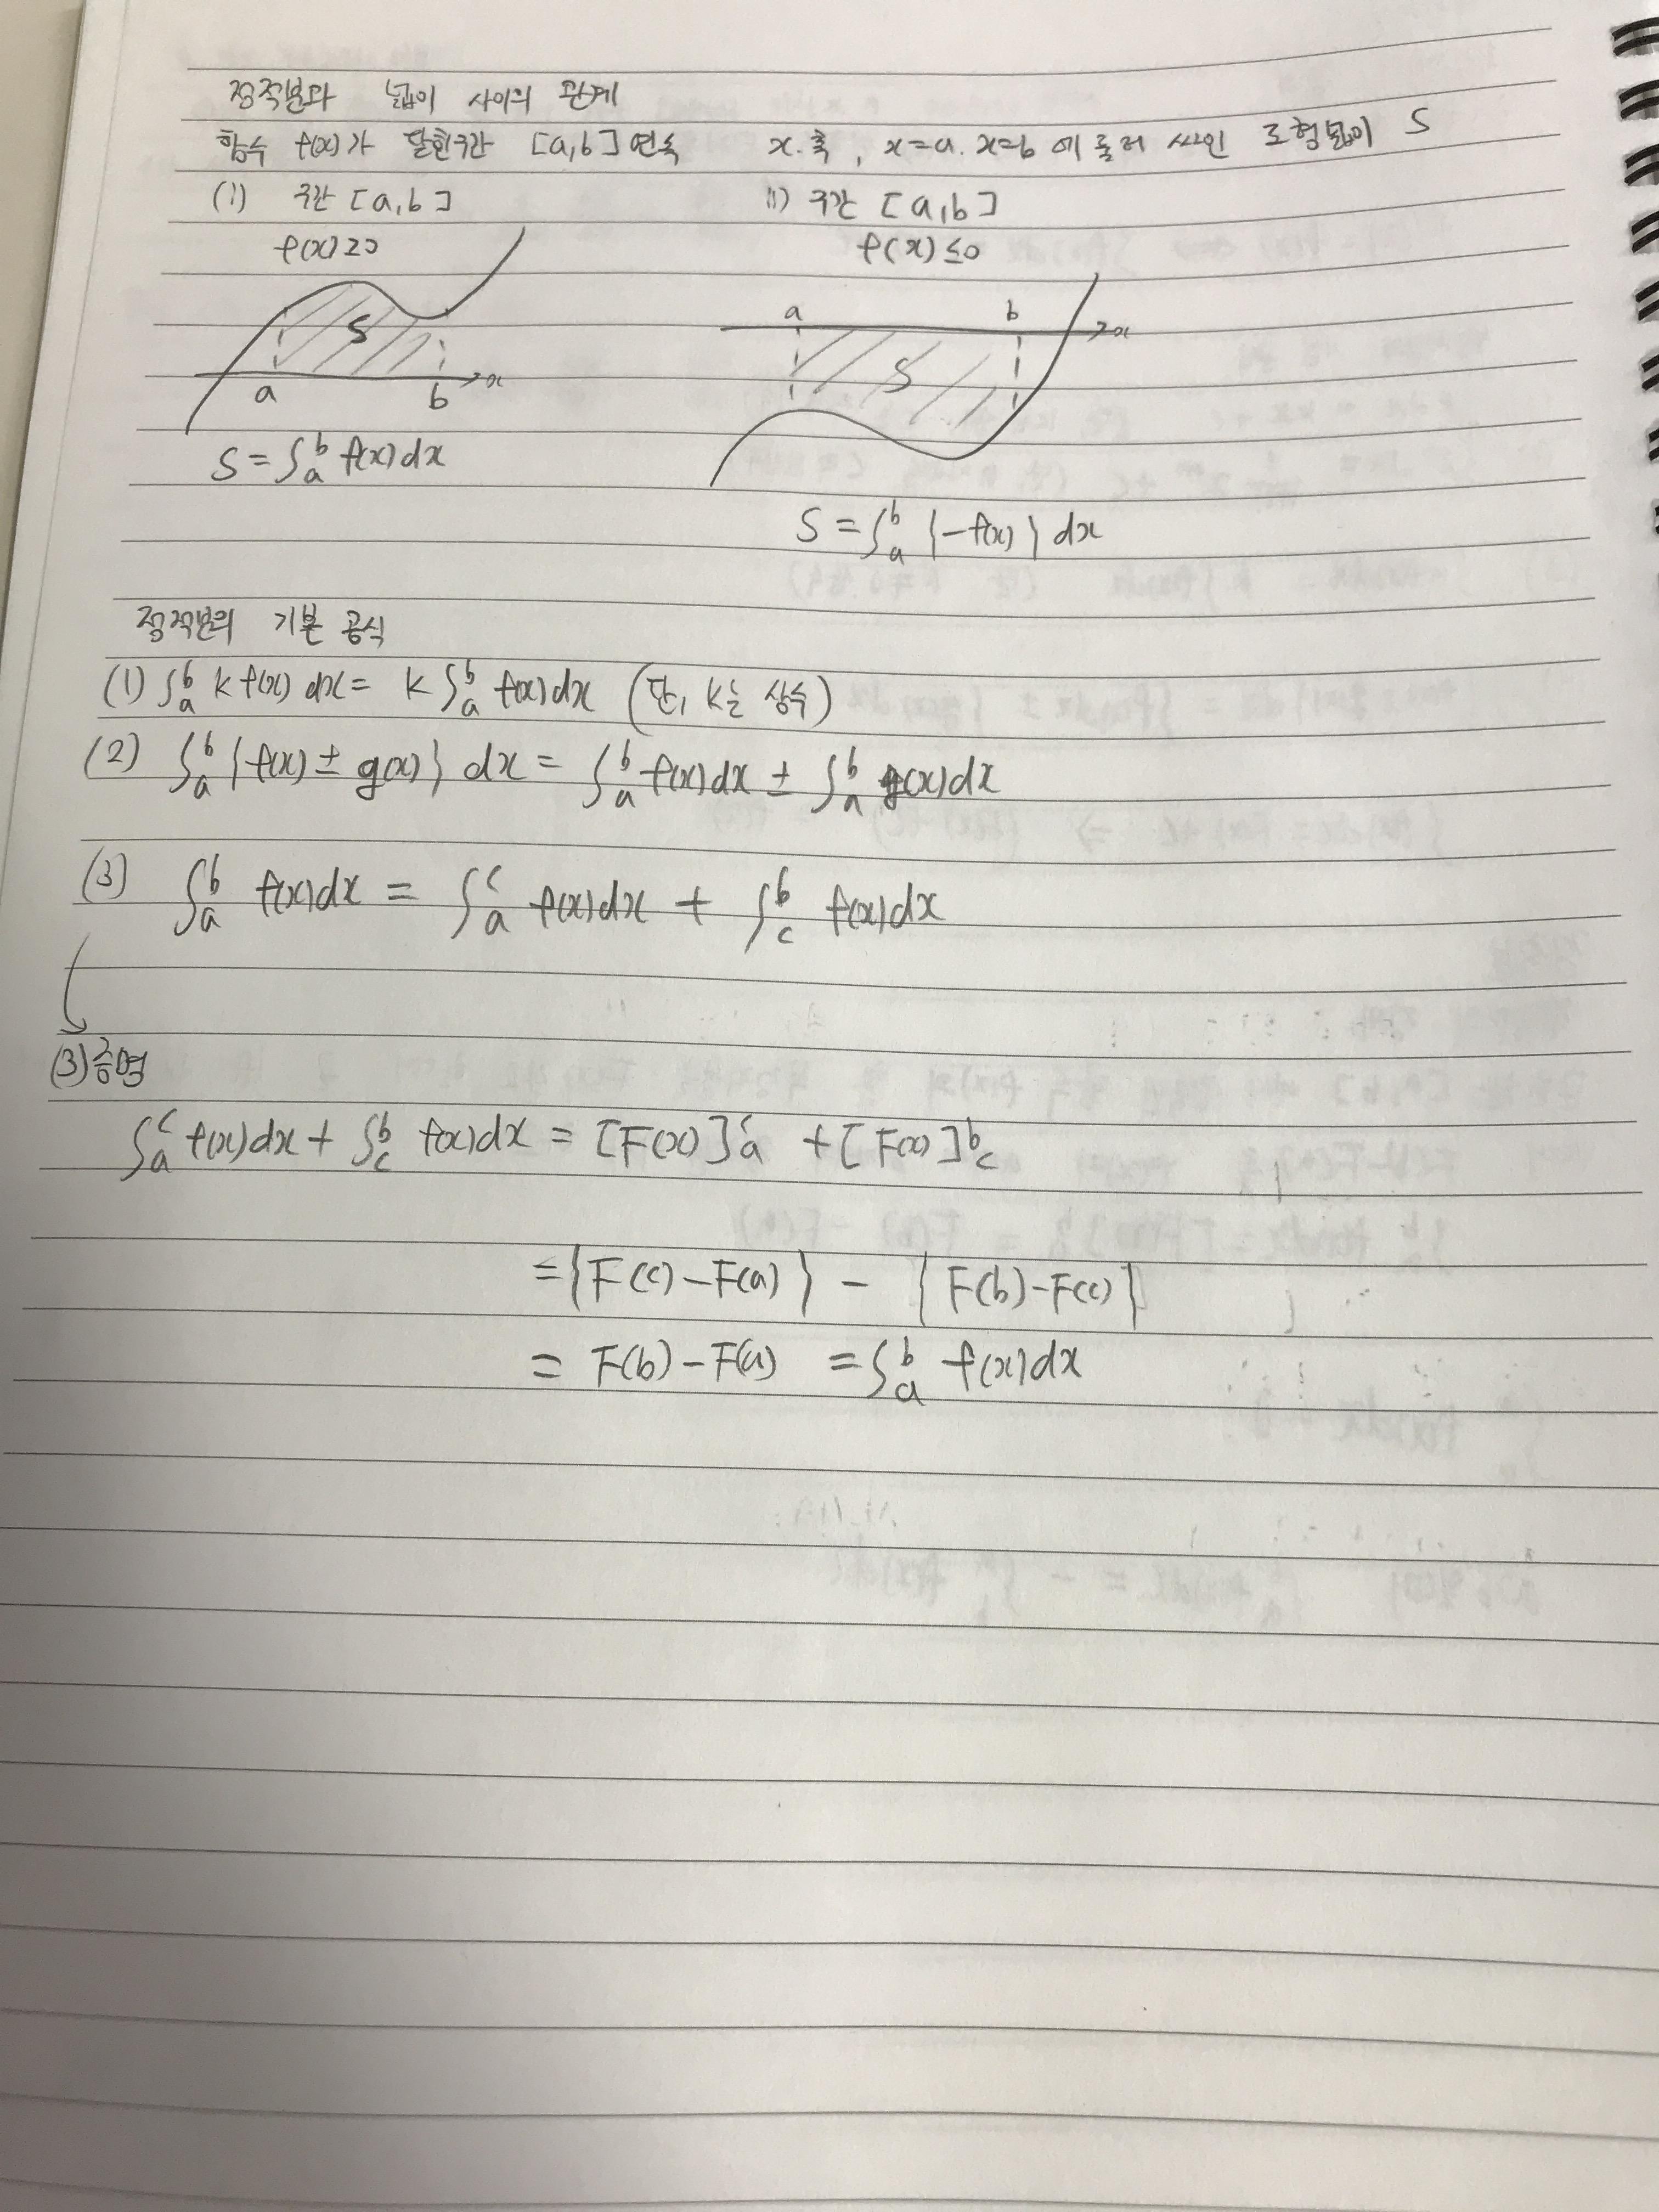 정적분과 넓이 사이의 관계
함수 f(x)가 닫힌구간 [a,b] 연속 x축, x=a. x=b 에 둘러 싸인 도형넓이 S
(i) 구간 [a,b]
f(x)≥0
S
a b x
S=∫ₐᵇ f(x)dx
ii) 구간 [a,b]
f(x)≤0
a b x
S
S=∫ₐᵇ {-f(x)} dx
정적분의 기본 공식
(1) ∫ₐᵇ k f(x) dx = k ∫ₐᵇ f(x)dx (단, k는 상수)
(2) ∫ₐᵇ {f(x) ± g(x)} dx = ∫ₐᵇ f(x)dx ± ∫ₐᵇ g(x)dx
(3) ∫ₐᵇ f(x)dx = ∫ₐᶜ f(x)dx + ∫_c^b f(x)dx
(3)증명
∫ₐᶜ f(x)dx + ∫_c^b f(x)dx = [F(x)]ₐᶜ + [F(x)]_c^b
={F(c)-F(a)} - {F(b)-F(c)}
= F(b)-F(a) =∫ₐᵇ f(x)dx